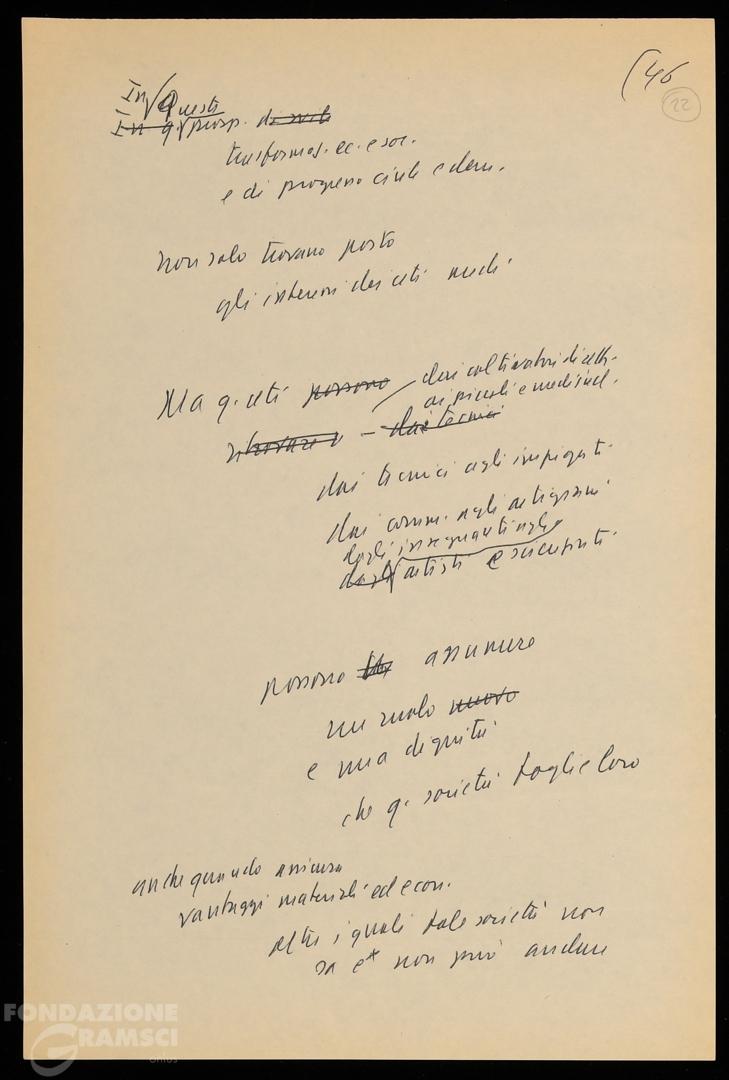 (46
22
In questi
In q. prosp. di svil
trasformaz. ec. e soc.
e di progresso civile e dem.
non solo trovano posto
gli interessi dei ceti medi
Ma q. ceti possono
dai coltivatori diretti
ai piccoli e medi ind.
ritrovare – dai tecnici
dai tecnici agli impiegati
dai comm. agli artigiani
dagli insegnanti agli
dagli artisti e scienziati
possono assumere
un ruolo nuovo
e una dignità
che q. società toglie loro
anche quando assicura
vantaggi materiali ed econ.
oltre i quali tale società non
sa e non può andare
FONDAZIONE
GRAMSCI
onlus